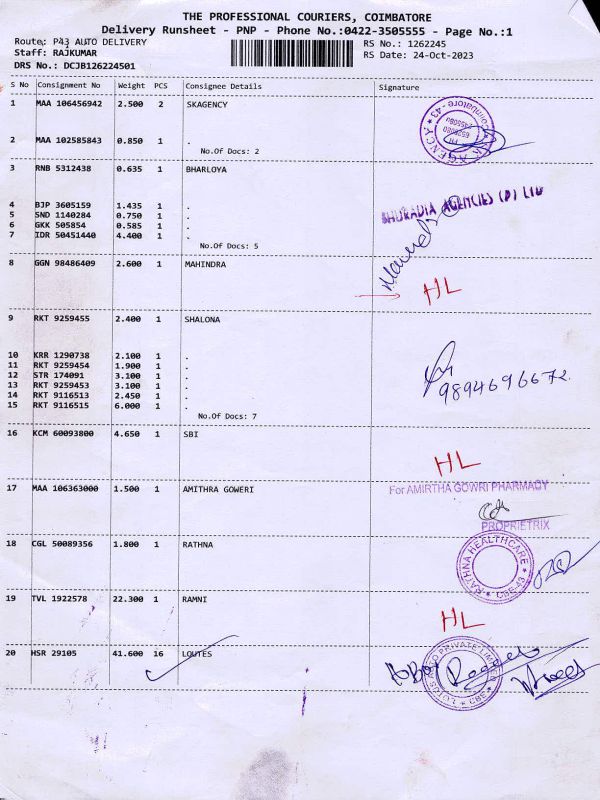 THE PROFESSIONAL COURIERS, COIMBATORE
Delivery Runsheet - PNP - Phone No.:0422-3505555 - Page No.:1
Route: P43 AUTO DELIVERY RS No.: 1262245
Staff: RAJKUMAR RS Date: 24-Oct-2023
DRS No.: DCJB126224501
S No Consignment No Weight PCS Consignee Details Signature
1 MAA 106456942 2.500 2 SKAGENCY
2 MAA 102585843 0.850 1 .
No.Of Docs: 2
3 RNB 5312438 0.635 1 BHARLOYA
4 BJP 3605159 1.435 1 .
5 SND 1140284 0.750 1 .
6 GKK 505854 0.585 1 .
7 IDR 50451440 4.400 1 .
No.Of Docs: 5
BHURADIA AGENCIES (P) LTD
8 GGN 98486409 2.600 1 MAHINDRA
HL
9 RKT 9259455 2.400 1 SHALONA
10 KRR 1290738 2.100 1 .
11 RKT 9259454 1.900 1 .
12 STR 174091 3.100 1 .
13 RKT 9259453 3.100 1 .
14 RKT 9116513 2.450 1 .
15 RKT 9116515 6.000 1 .
No.Of Docs: 7
9894696672
16 KCM 60093800 4.650 1 SBI
HL
17 MAA 106363000 1.500 1 AMITHRA GOWERI
For AMIRTHA GOWRI PHARMACY
PROPRIETRIX
18 CGL 50089356 1.800 1 RATHNA
RATHNA HEALTHCARE
CBE-43
19 TVL 1922578 22.300 1 RAMNI
HL
20 HSR 29105 41.600 16 LOUTES